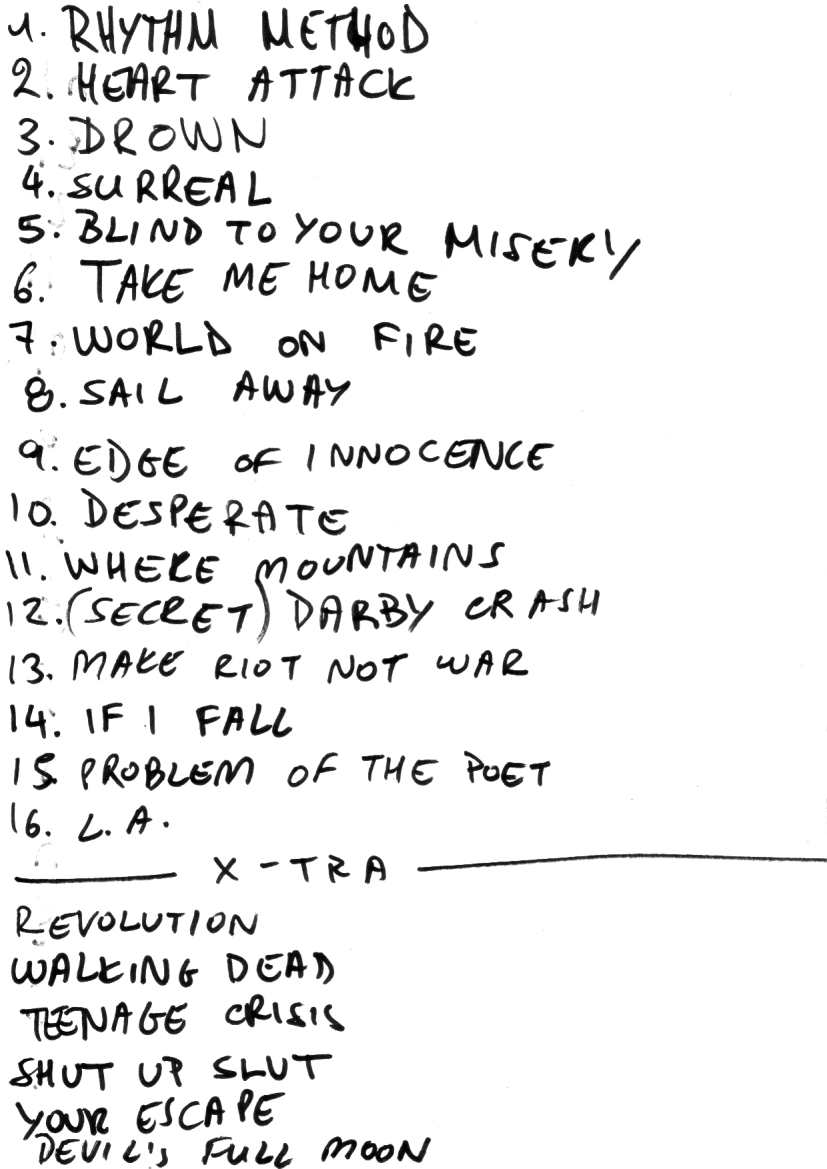 1. RHYTHM METHOD
2. HEART ATTACK
3. DROWN
4. SURREAL
5. BLIND TO YOUR MISERY
6. TAKE ME HOME
7. WORLD ON FIRE
8. SAIL AWAY
9. EDGE OF INNOCENCE
10. DESPERATE
11. WHERE MOUNTAINS
12. (SECRET) DARBY CRASH
13. MAKE RIOT NOT WAR
14. IF I FALL
15. PROBLEM OF THE POET
16. L.A.
X-TRA
REVOLUTION
WALKING DEAD
TEENAGE CRISIS
SHUT UP SLUT
YOUR ESCAPE
DEVIL'S FULL MOON